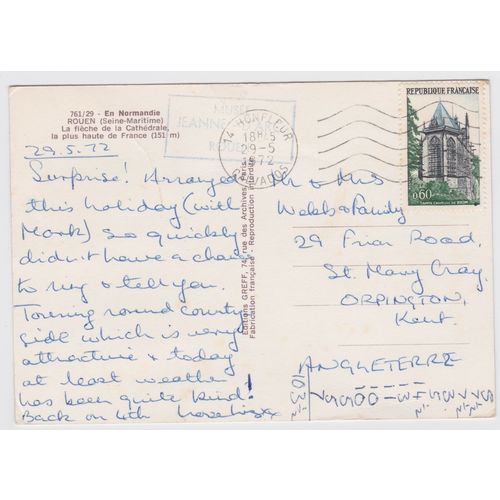 761/29 - En Normandie
ROUEN (Seine-Maritime)
La flèche de la Cathédrale,
la plus haute de France (151 m)
29.5.72
Surprise! Arranged
this holiday (with
Mark) so quickly
didn't have a chance
to ring & tell you.
Touring round country
side which is very
attractive & today
at least weather
has been quite kind!
Back on 4th love
Editions GREFF, 74, rue des Archives, Paris
Fabrication française - Reproduction interdite
MUSÉE
JEANNE
ROUEN
14 HONFLEUR
18H15
29-5
1972
CALVADOS
REPUBLIQUE FRANÇAISE
0,60
SAINTE CHAPELLE DE RIOM
Mr & Mrs
Webb & Family
29 Friar Road,
St. Mary Cray,
ORPINGTON,
Kent.
ANGLETERRE